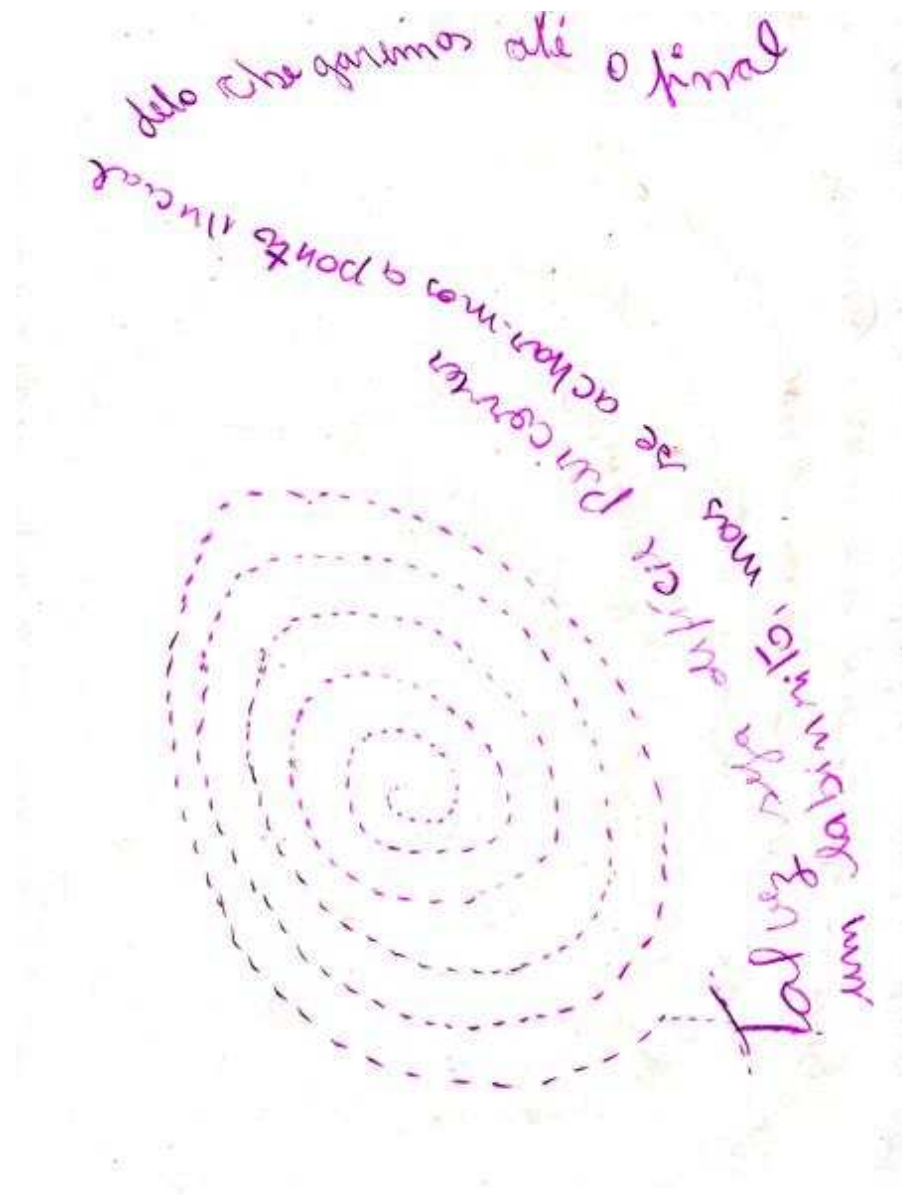 Talvez seja difícil percorrer
um labirinto, mas se achar-mos a ponta inicial
dele chegaremos até o final